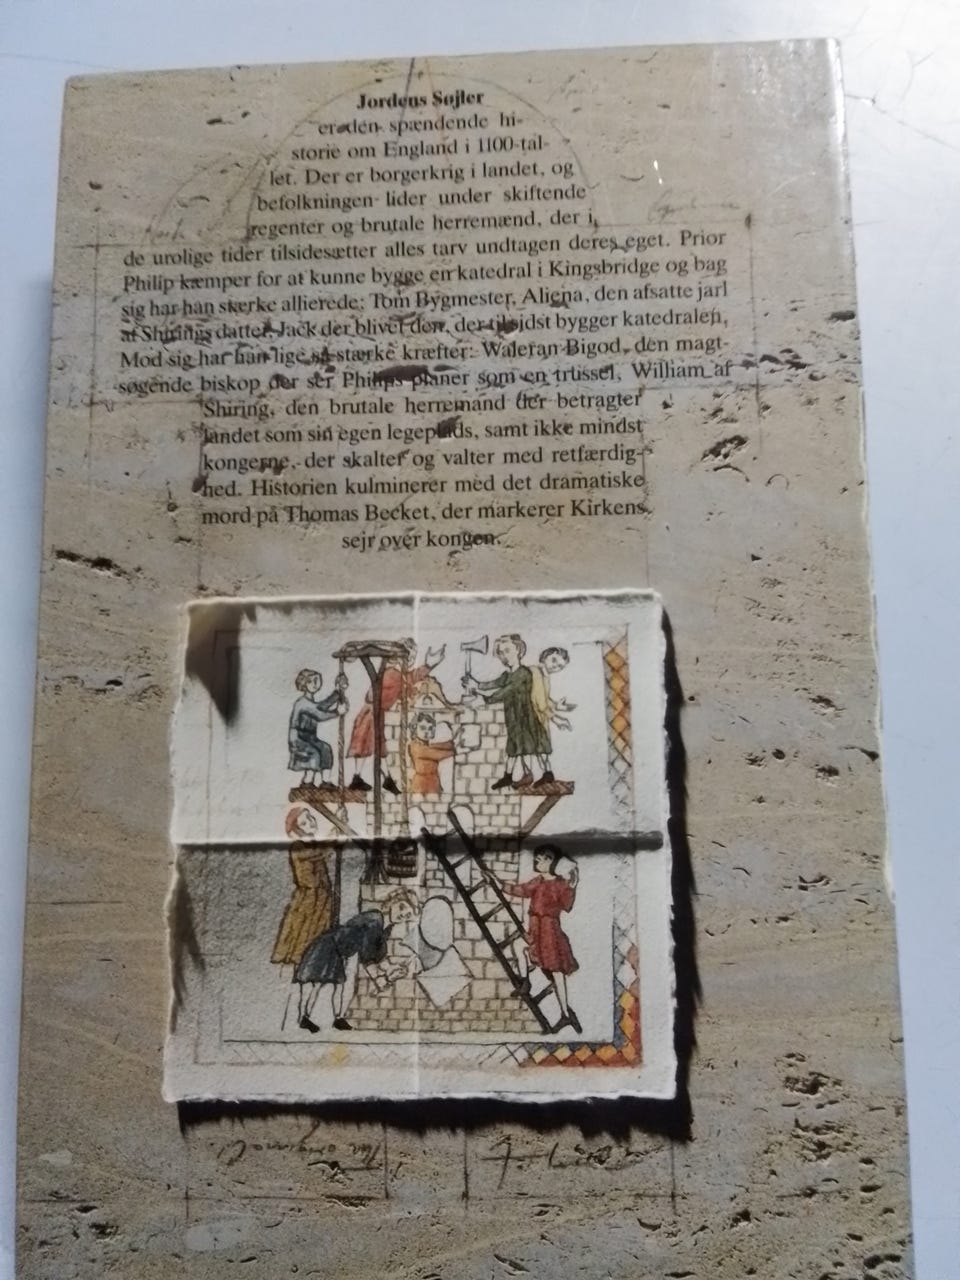 Jordens Søjler
er den spændende hi-
storie om England i 1100-tal-
let. Der er borgerkrig i landet, og
befolkningen lider under skiftende
regenter og brutale herremænd, der i
de urolige tider tilsidesætter alles tarv undtagen deres eget. Prior
Philip kæmper for at kunne bygge en katedral i Kingsbridge og bag
sig har han stærke allierede: Tom Bygmester, Aliena, den afsatte jarl
af Shirings datter, Jack der bliver den, der til sidst bygger katedralen,
Mod sig har han lige så stærke kræfter: Waleran Bigod, den magt-
søgende biskop der ser Philips planer som en trussel, William af
Shiring, den brutale herremand der betragter
landet som sin egen legeplads, samt ikke mindst
kongerne, der skalter og valter med retfærdig-
hed. Historien kulminerer med det dramatiske
mord på Thomas Becket, der markerer Kirkens
sejr over kongen.